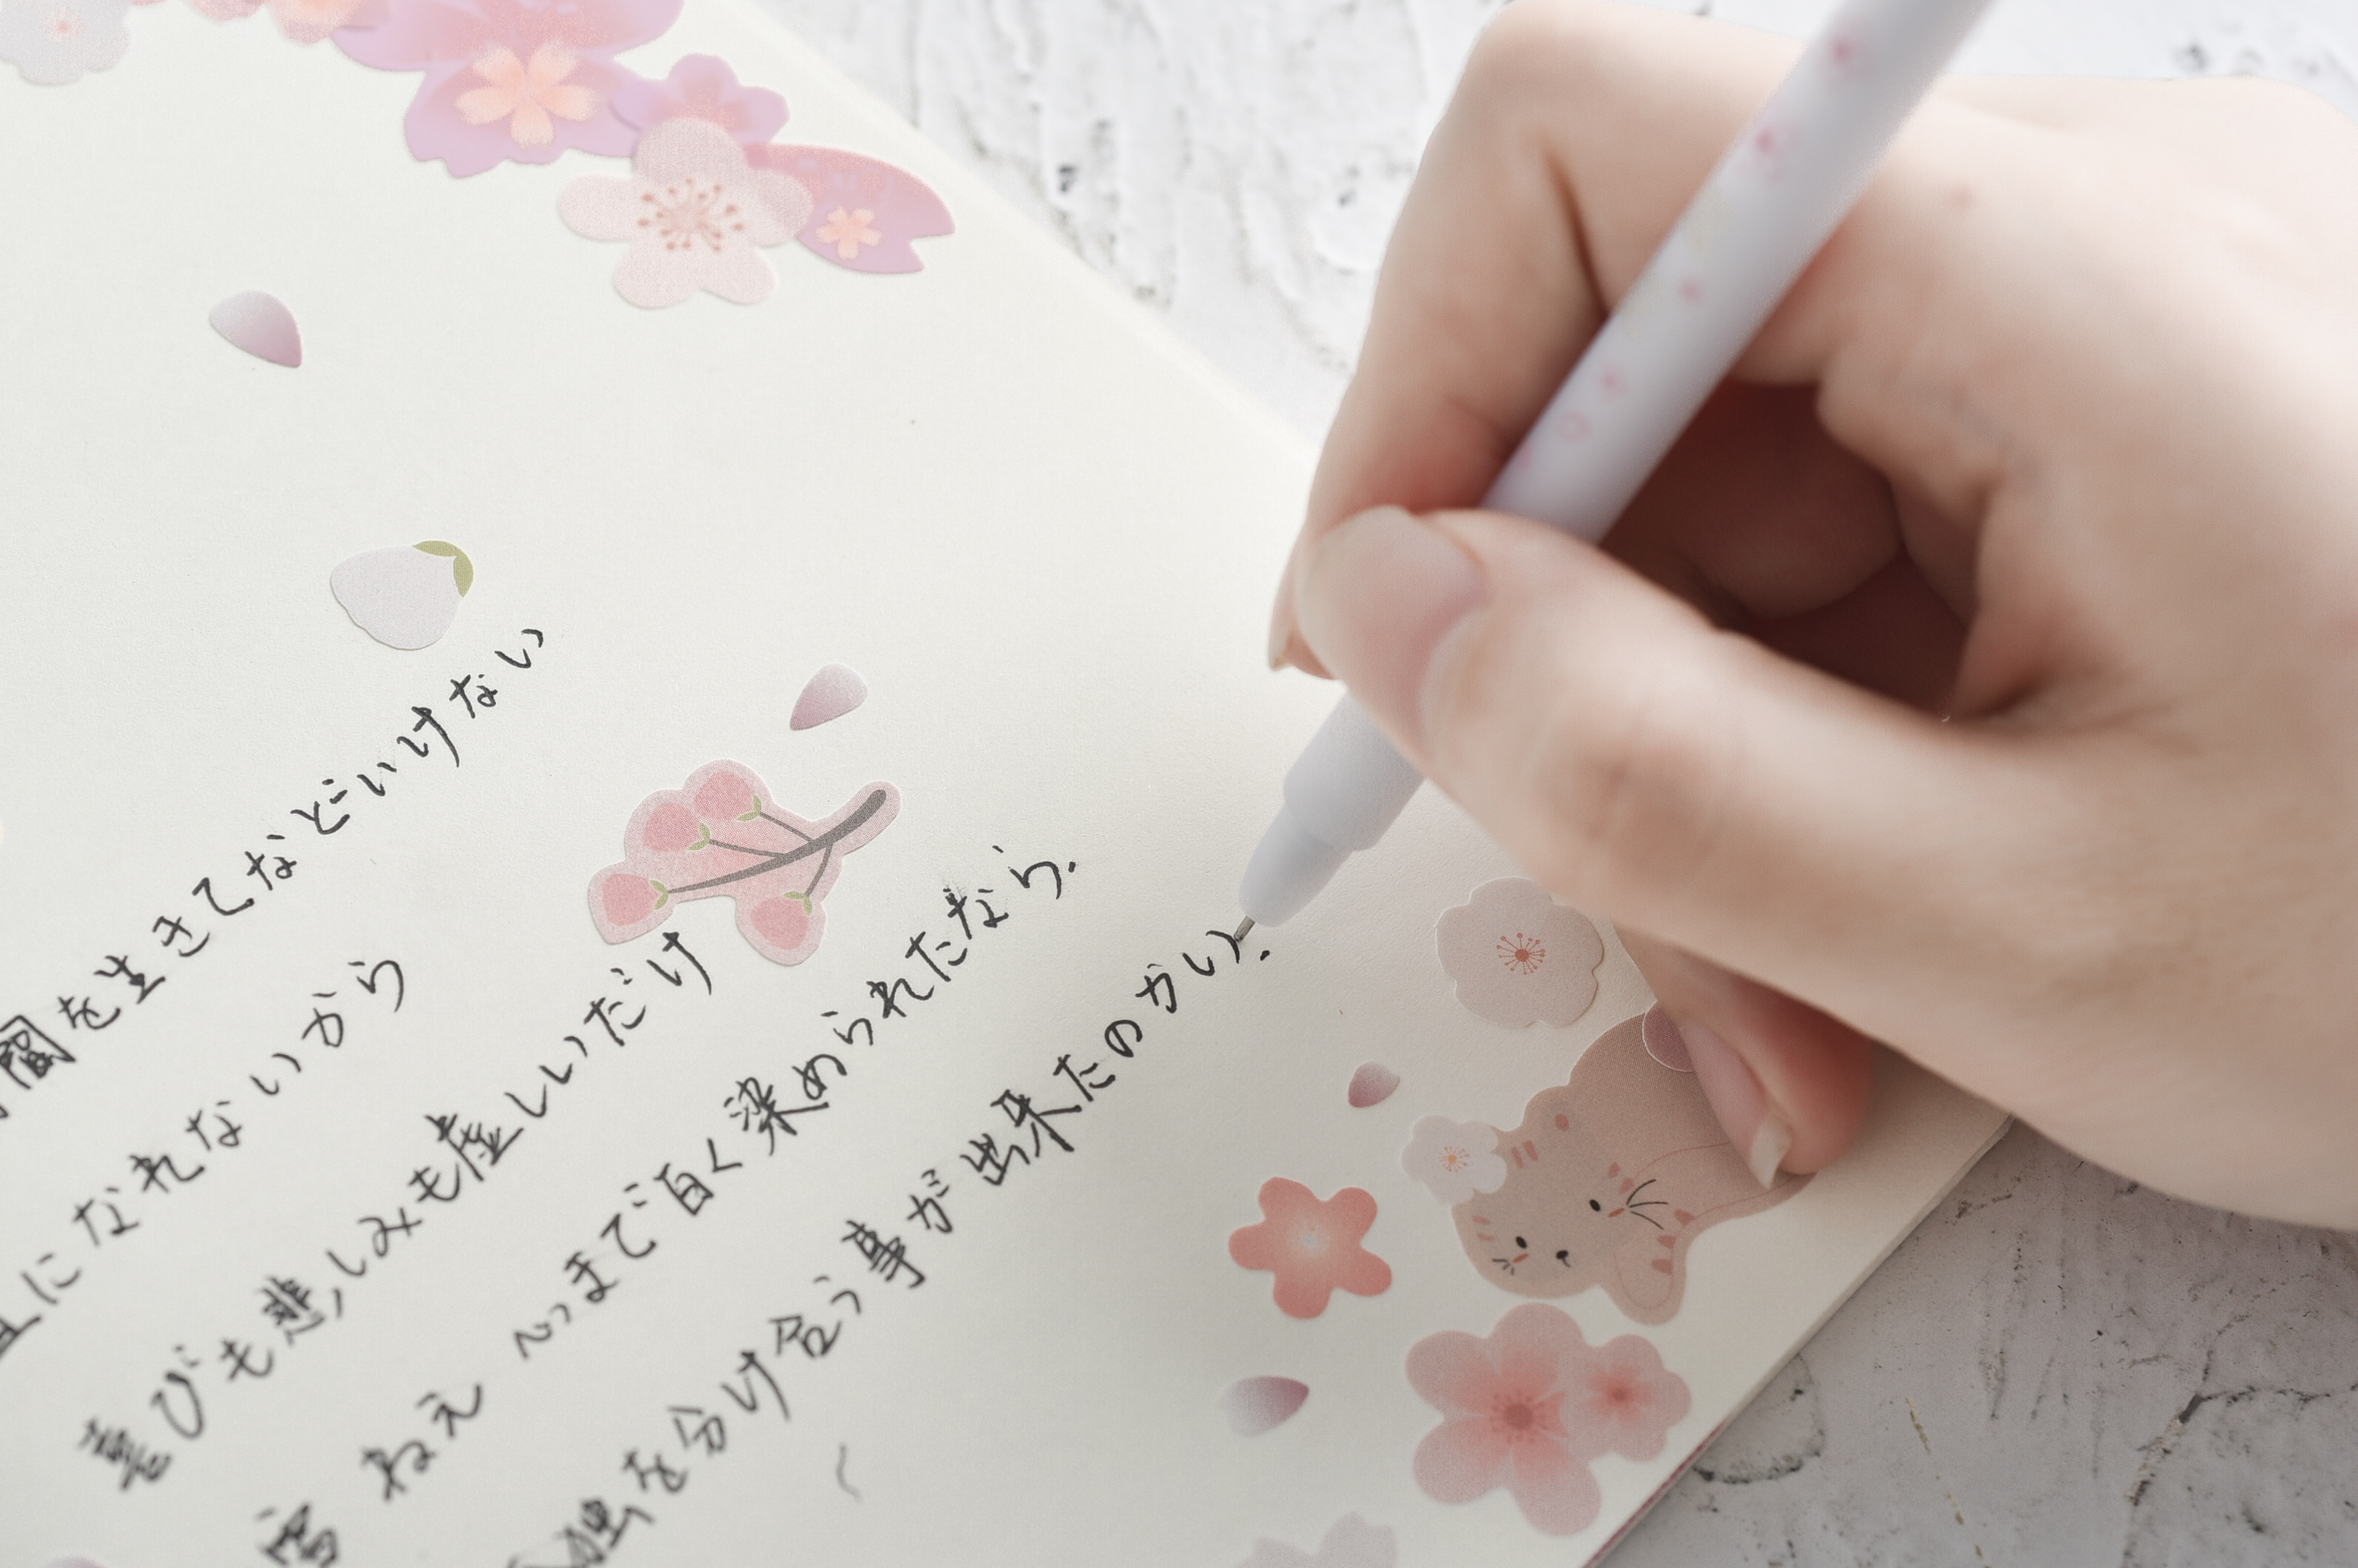 間を生きてなどいけない
になれないから
喜びも悲しみも虚しいだけ
雪 ねえ いつまで白く染められたなら.
独を分け合う事が出来たのかい.